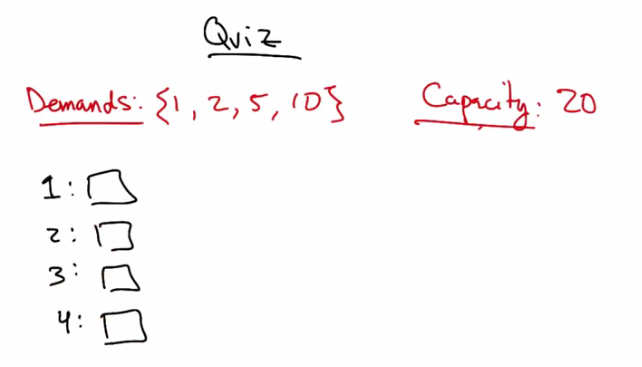 Quiz
Demands: {1, 2, 5, 10} Capacity: 20
1:
2:
3:
4: